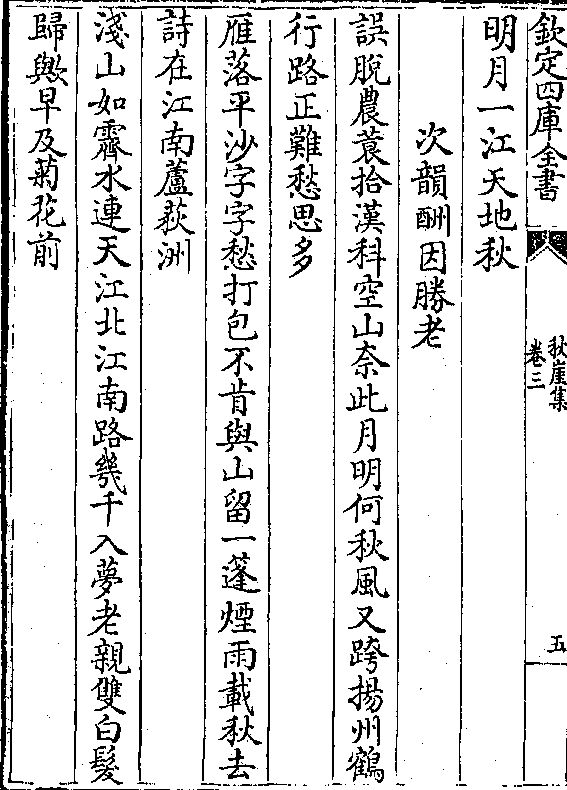 欽定四庫全書
秋崖集
卷三
五
明月一江天地秋
次韻酬因勝老
誤脫農蓑拾漢科空山奈此月明何秋風又跨揚州鶴
行路正難愁思多
雁落平沙字字愁打包不肯與山留一蓬煙雨載秋去
詩在江南蘆荻洲
淺山如霽水連天江北江南路幾千入夢老親雙白髮
歸歟早及菊花前